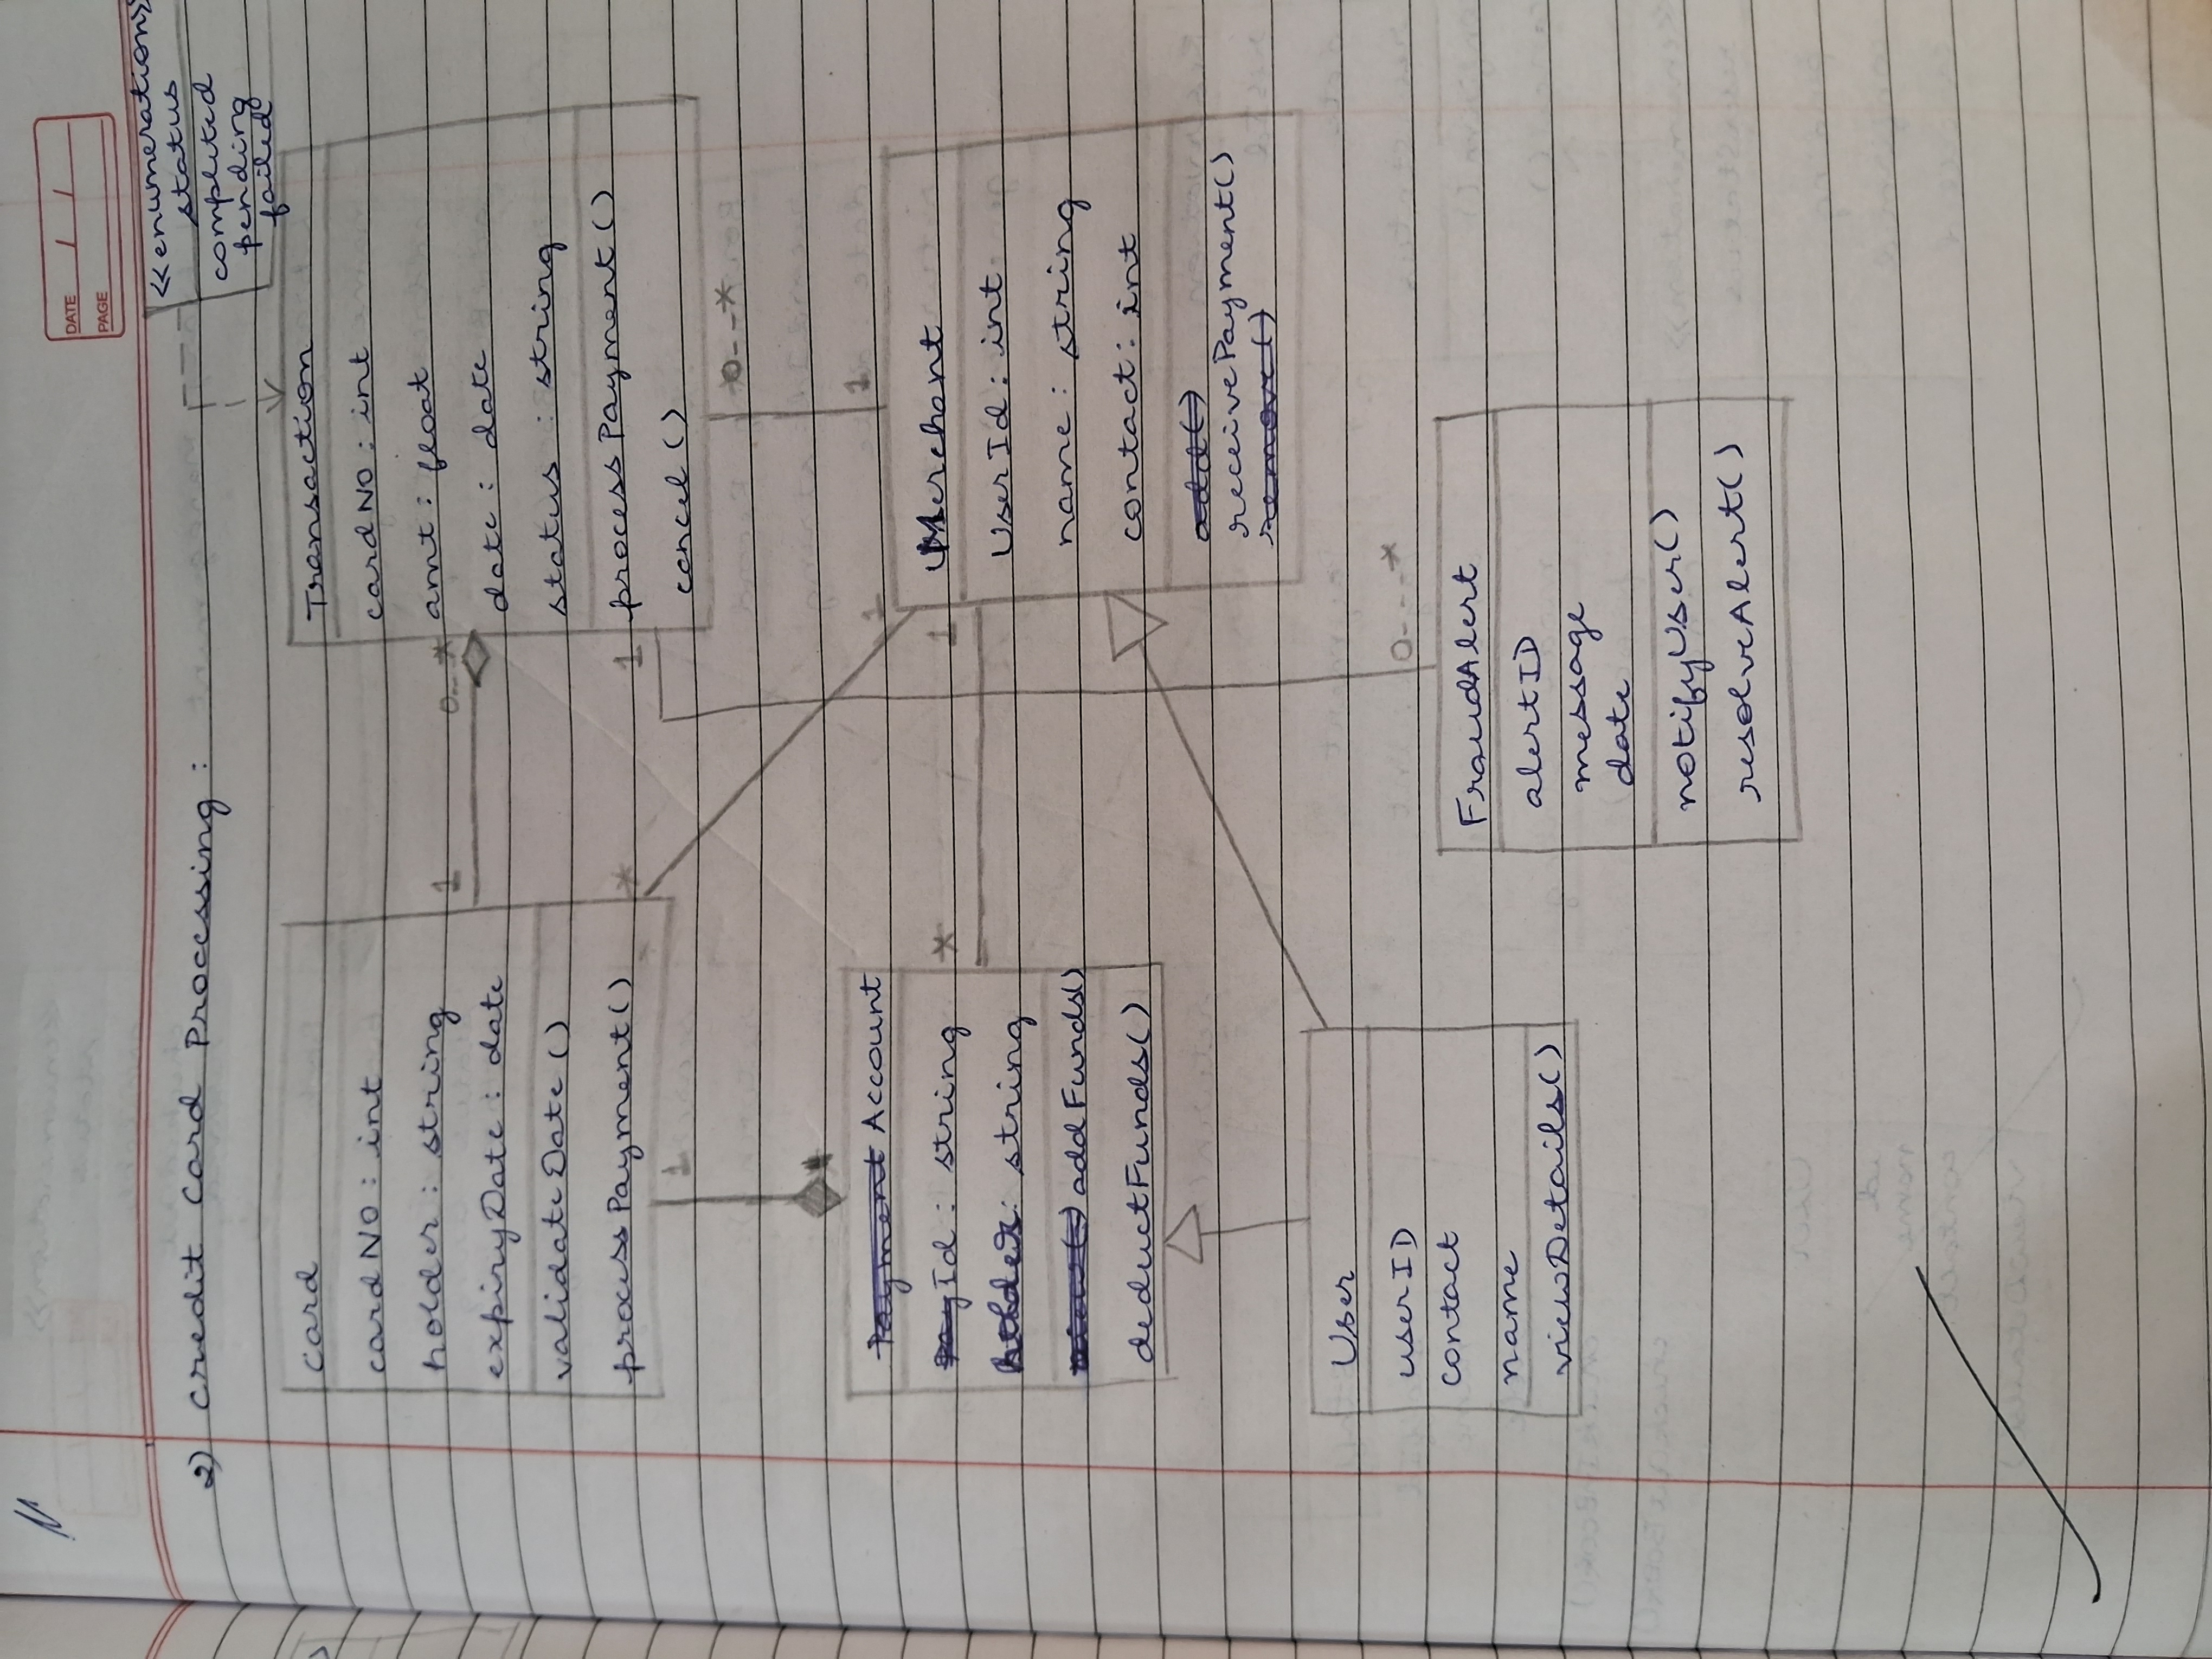 DATE / /
PAGE
<<enumeration>>
status
completed
pending
failed
2) Credit Card Processing :
Card
cardNO : int
holder : string
expiryDate : date
validateDate ()
processPayment()
Transaction
cardNO : int
amt : float
date : date
status : string
processPayment ()
cancel ()
1
0--*
*
1
1
0--*
1
1
Payment Account
Pay Id : string
: string
view() addFunds()
deductFunds()
*
1
Merchant
UserId : int
name : string
contact : int
add()
receivePayment()
remove()
User
userID
contact
name
viewDetails()
0---*
FraudAlert
alertID
message
date
notifyUser()
resolveAlert()